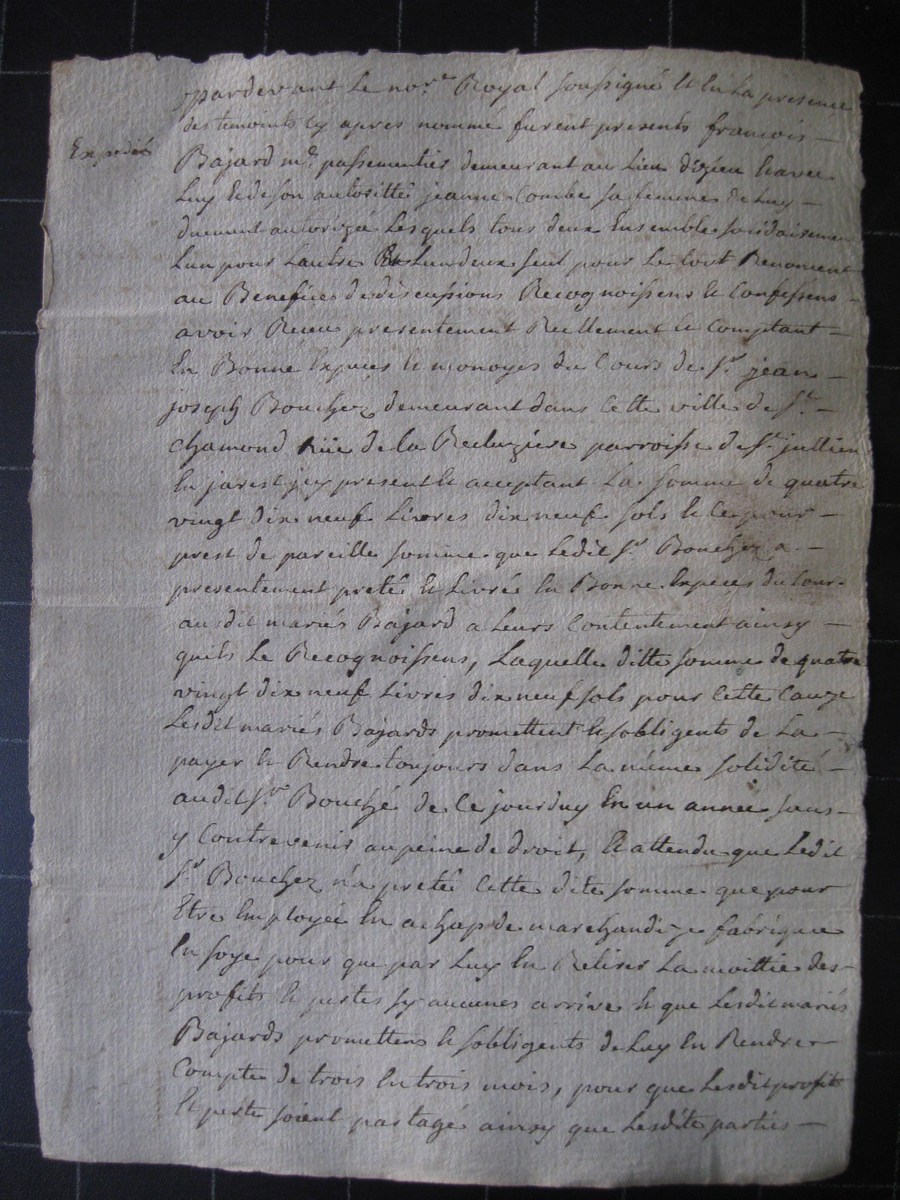 pardevant Le nor.e Royal soussigné et En La presence
des temoints cy apres nommé furent presents francois
Expedié
Bajard m.d passementier demeurant au Lieu d'izieu et avec
Luy et de son autoritté jeanne Combe sa femme de Luy
duement autorizée Lesquels tous deux Ensemble solidairement
L'un pour L'autre Lun deux seul pour Le tout Renoncent
au Benefice de discussions Recognoissens et Confessens
avoir Receu presentement Reellement et Comptant
En Bonne Especes et monoyes du Cours de S.r jean
joseph Bouchez demeurant dans Cette ville de S.t
chamond rüe de la parroisse de S.t jullien
En jarest jcy present et acceptant La somme de quatre
vingt dix neuf Livres dix neuf sols et Ce pour
prest de pareille somme que Ledit S.r Bouchez a
presentement preté et Livré En Bonne Especes du Cour
ausdit mariés Bajard a Leurs Contentement ainsy
quils Le Recognoissens, Laquelle ditte somme de quatre
vingt dix neuf Livres dix neuf sols pour Cette Cauze
Lesdit mariés Bajards promettent et sobligents de La
payer et Rendre toujours dans La même solidité
audit S.r Bouché de Ce jourduy En un annee sans
y Contrevenir au peine de droit, Et attendu que Ledit
S.r Bouchez n'a preté Cette dite somme que pour
Etre Employée En achap de marchandize fabrique
En soye pour que par Luy En Retirer La moittié des
profits et pertes sy aucunes arrive et que Lesdit mariés
Bajards promettens et sobligents de Luy En Rendre
Compte de trois En trois mois, pour que Lesdit profit
Et perte soient partagé ainsy que Lesdite parties